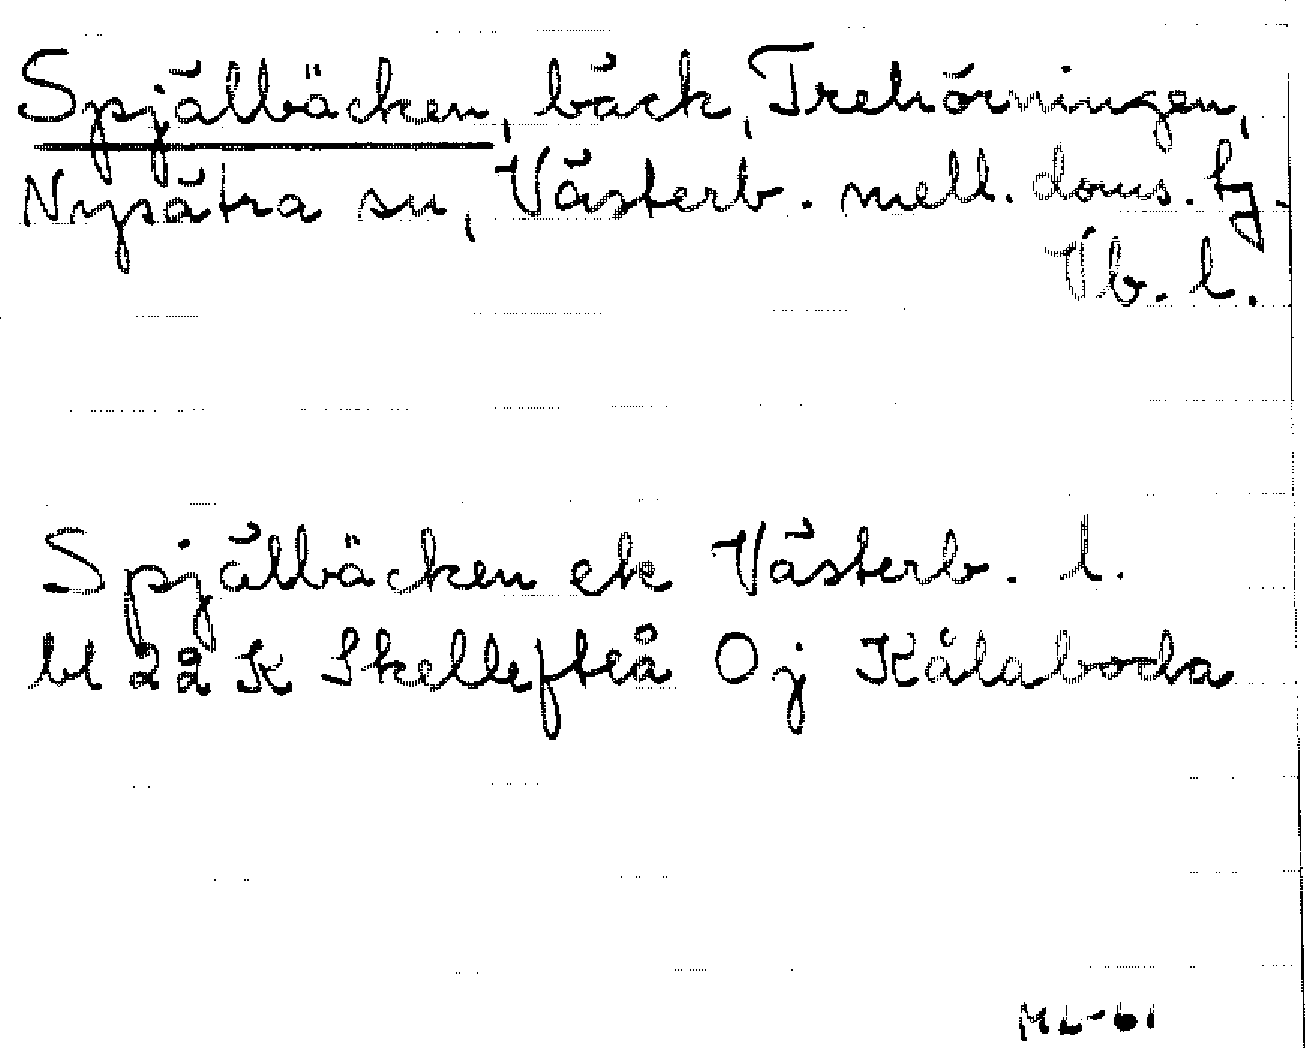 Spjälbäcken, bäck, Trehörningen,
Nysätra sn, Västerb. mell. doms. tg.
Vb. l.
Spjälbäcken ek Västerb. l.
bl 22 K Skellefteå Oj Kålaboda
ML-61